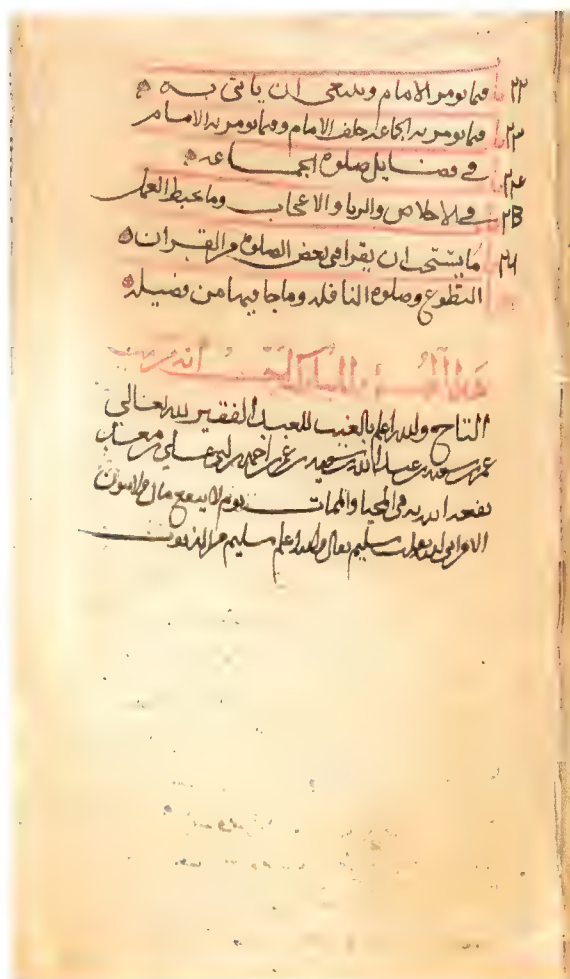 ٢٢ فيما يومر الامام وينبغي ان ياتي به
٢٣ فيما يومر به الجماعه خلف الامام وفيما يومر به الامام
٢٤ في فضايل صلوة الجماعه
٢٥ في الاخلاص والريا والاعجاب وما يحبط العمل
٢٦ ما يستحب ان يقرا في بعض الصلوة من القران
التطوع وصلوة النافله وما جا فيها من فضيله
هذا المبارك
التاج والله اعلم بالغيب للعبد الفقير لله تعالى
عمر بن سعيد بن عبد الله بن سعيد بن عمر بن احمد بن ابي علي بن معد
نفعه الله به في المحيا والممات يوم لا ينفع مال ولا بنون
الا من اتى الله بقلب سليم والله اعلم سليم من الذنوب